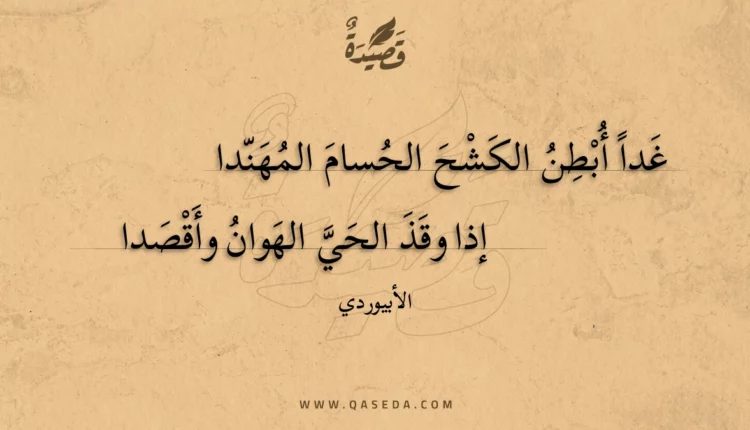 قَصِيْدَةٌ
غَداً أُبْطِنُ الكَشْحَ الحُسامَ المُهَنّدا
إذا وقَذَ الحَيَّ الهَوانُ وأَقْصَدا
الأبيوردي
WWW.QASEDA.COM